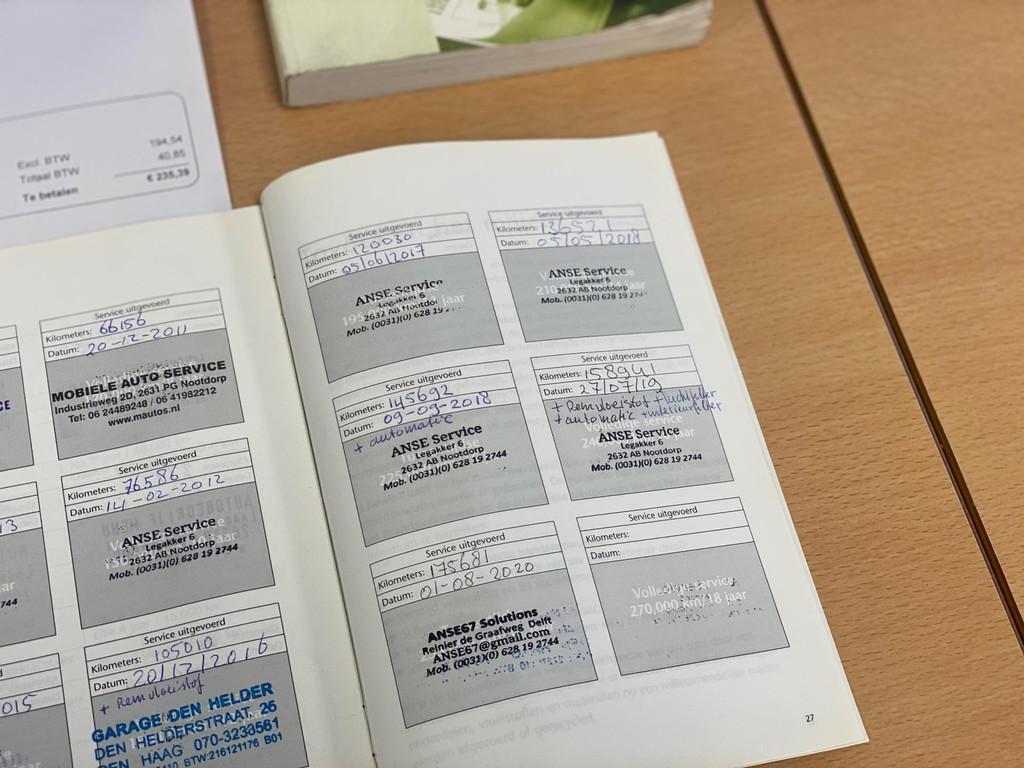 Excl. BTW 194,54
Totaal BTW 40,85
Te betalen € 235,39
Service uitgevoerd
Kilometers: 66156
Datum: 20-12-2011
MOBIELE AUTO SERVICE
Industrieweg 2D, 2631 PG Nootdorp
Tel: 06 24489248 / 06 41982212
www.mautos.nl
Service uitgevoerd
Kilometers: 76586
Datum: 14-02-2012
ANSE Service
Legakker 6
2632 AB Nootdorp
Mob. (0031)(0) 628 19 2744
Service uitgevoerd
Kilometers: 105010
Datum: 20/12/2016
+ Remvloeistof
GARAGE DEN HELDER
DEN HELDERSTRAAT 26
DEN HAAG 070-3233561
BTW:216121176 B01
015
Service uitgevoerd
Kilometers: 120030
Datum: 05/06/2017
ANSE Service
Legakker 6
2632 AB Nootdor
Mob. (0031)(0) 628 19
jaar
Service uitgevoerd
Kilometers: 136521
Datum: 05/05/2018
ANSE Service
Legakker 6
2632 AB Nootdorp
Mob. (0031)(0) 628 19 274
jaar
Service uitgevoerd
Kilometers: 145692
Datum: 09-09-2018
+ automatic
ANSE Service
Legakker 6
2632 AB Nootdorp
Mob. (0031)(0) 628 19 2744
Service uitgevoerd
Kilometers: 158941
Datum: 27/07/19
+ Remvloeistof + luchtfilter
+ automatic + interieurfilter
Volledige service
ANSE Service
Legakker 6
2632 AB Nootdorp
Mob. (0031)(0) 628 19 2744
Service uitgevoerd
Kilometers: 175681
Datum: 01-08-2020
ANSE67 Solutions
Reinier de Graafweg Delft
ANSE67@gmail.com
Mob. (0031)(0) 628 19 2744
Service uitgevoerd
Kilometers:
Datum:
Volledige service
270,000 km/18 jaar
27